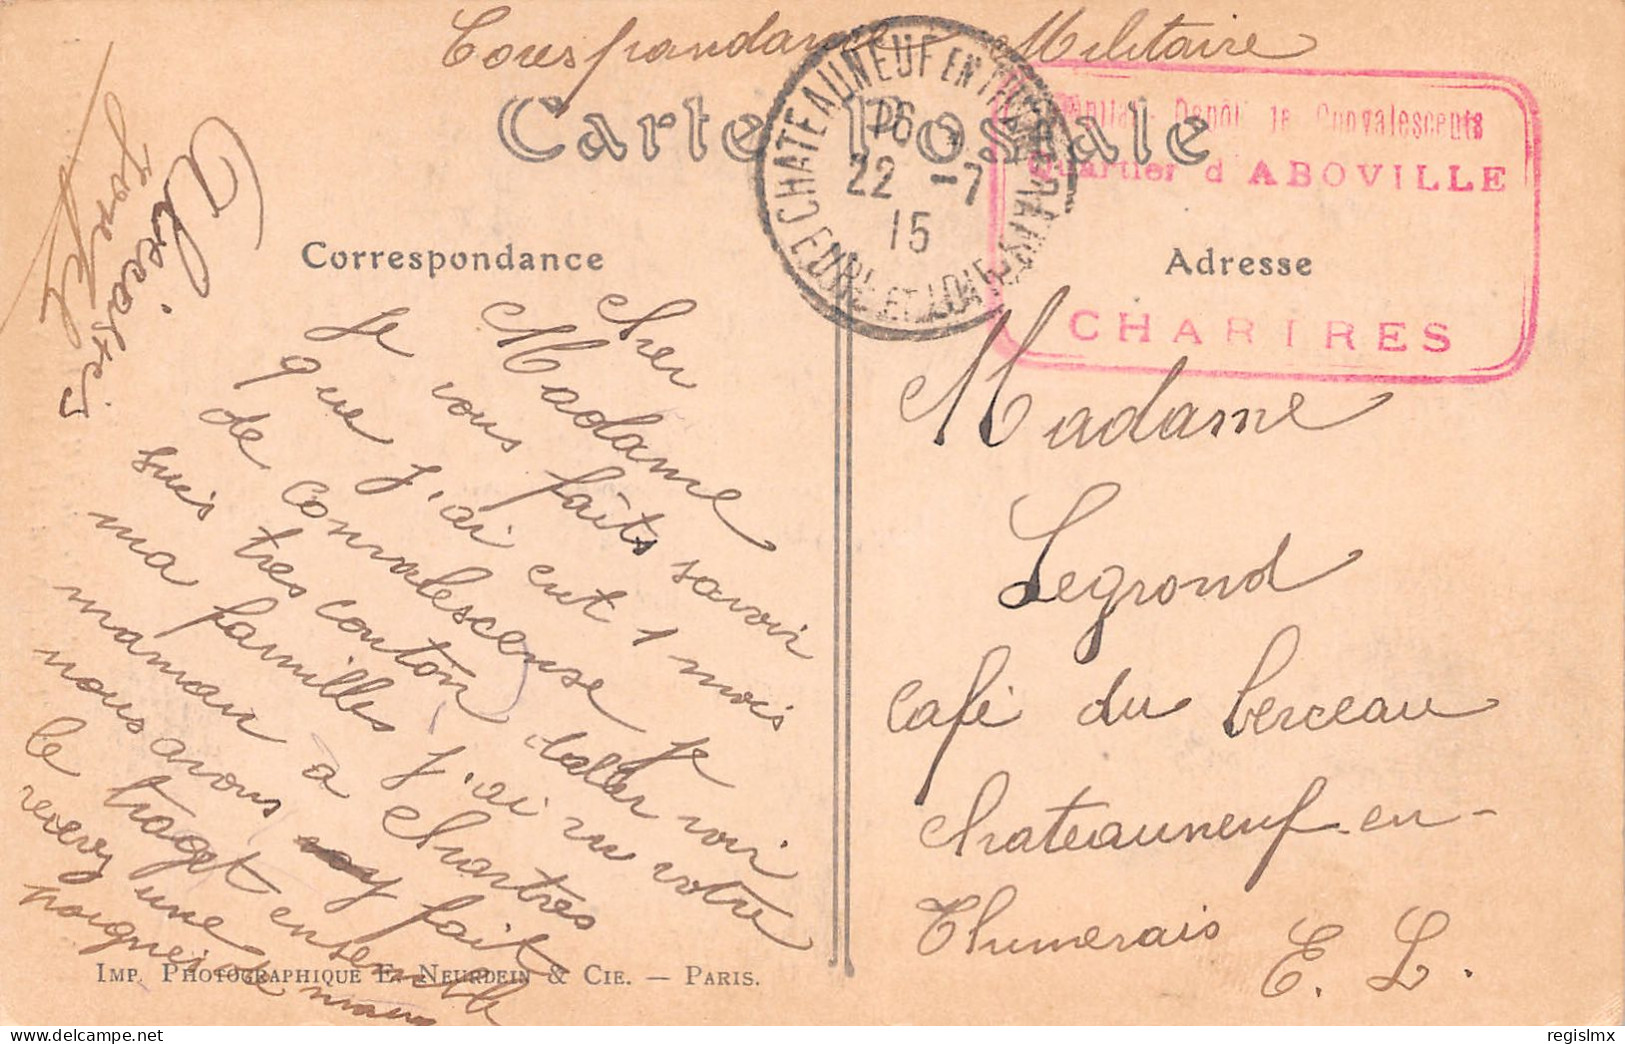 Corespondance Militaire
Carte Postale
CHATEAUNEUF EN THIMERAIS
16
22 -7
15
EURE ET LOIR
Dépôt de Convalescents
Quartier d'ABOVILLE
CHARTRES
Correspondance
Adresse
cher
Madame
Je vous faîts savoir
que j'ai eut 1 mois
de convalescense je
suis tres conton daller voir
ma familles j'ai vu votre
maman a chartres
nous avons fait
le traget ensemble
recevez une
poignei de
Madame
Legrond
café du berceau
chateauneuf-en-
Thimerais
E. L.
IMP. PHOTOGRAPHIQUE E. NEURDEIN & CIE. — PARIS.
regislmx